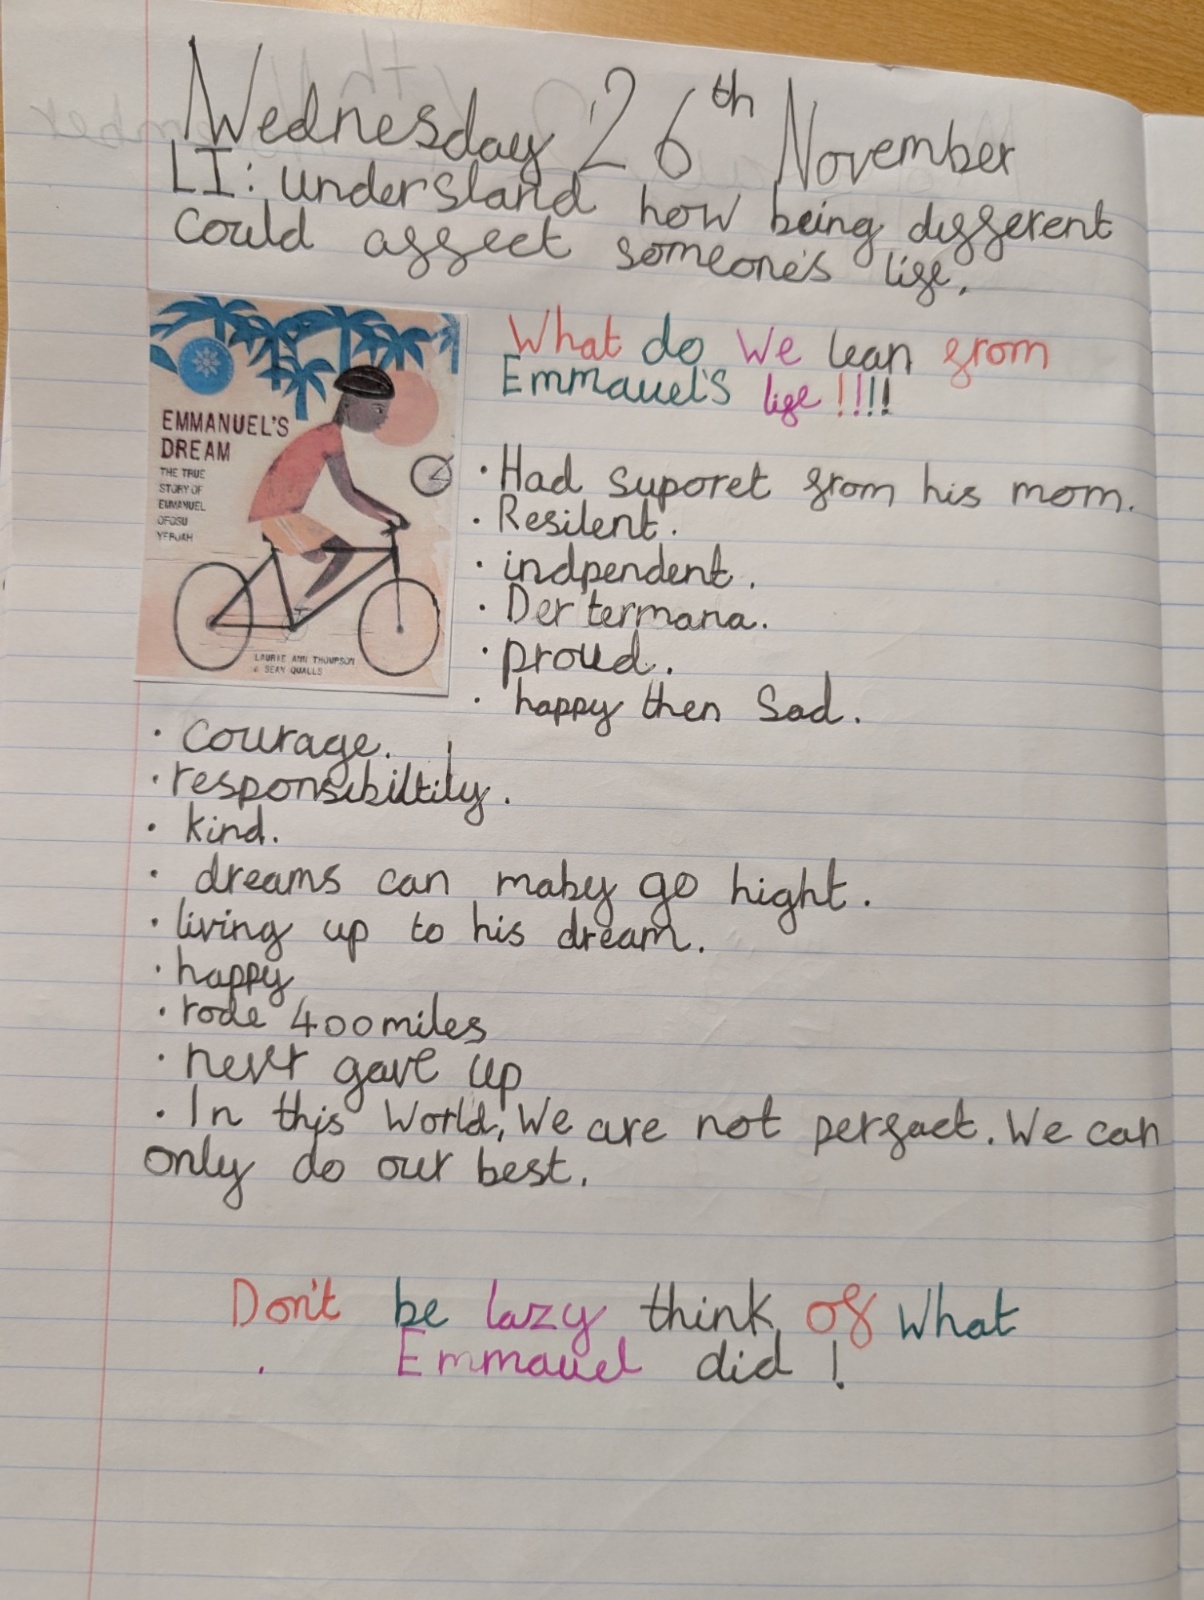 Wednesday 26th November
LI: understand how being different
could affect someone's life.
What do We lean from
Emmauel's life !!!!
EMMANUEL'S
DREAM
THE TRUE
STORY OF
EMMANUEL
OFOSU
YEBOAH
LAURIE ANN THOMPSON
& SEAN QUALLS
· Had suporet from his mom.
· Resilent.
· indpendent.
· Der termana.
· proud.
· happy then Sad.
· courage.
· responsibiltily.
· kind.
· dreams can maby go hight.
· living up to his dream.
· happy
· rode 400miles
· never gave up
· In this World, We are not perfaect. We can
only do our best.
Don't be lazy think of What
Emmauel did !